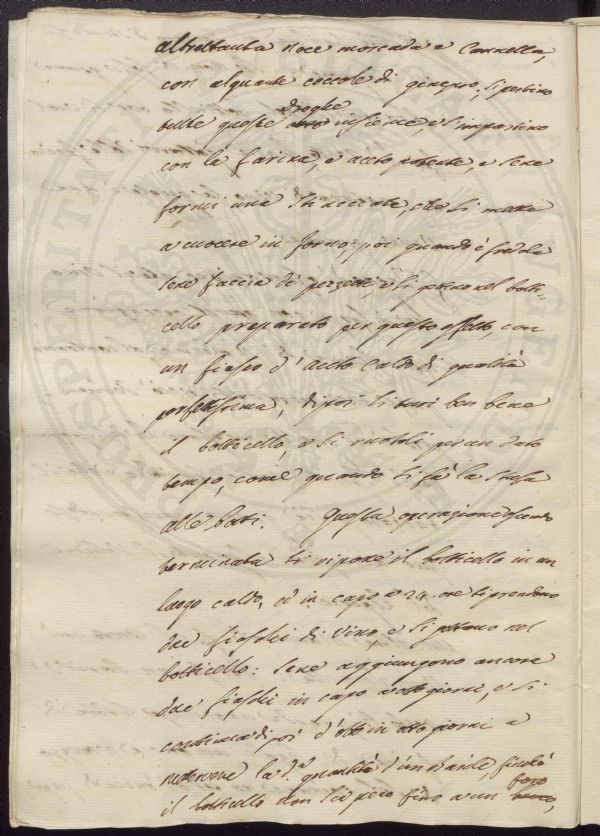 altrettanta noce moscada e Cannella,
con alquante coccole di ginepro, si pestino
tutte queste droghe insieme, e s'impastino
con la farina, e aceto potente, e sene
formi una stiacciata, che si mette
a cuocere in forno; poi quando è fredda
sene faccia de' pezzetti e si gettino nel botti=
cello preparato per questo effetto, con
un fiasco d'aceto caldo di qualità
perfettissima, dipoi si turi ben bene
il botticello, e si ruotoli per un dato
tempo, come quando si fà la stufa
alle botti. Questa operazione essendo
terminata si ripone il botticello in un
luogo caldo, ed in capo a 24 ore si prendono
due fiaschi di vino, e si gettano nel
botticello: sene aggiungono ancora
due fiaschi in capo a otto giorni, e si
continua dipoi d'otto in otto giorni a
metterne la d.ª quantità d'un Barile, finchè
il botticello non sia pieno fino a un foro,